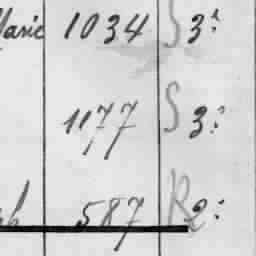 Marie 1034 S 3.
1177 S 3.
587 R 2.